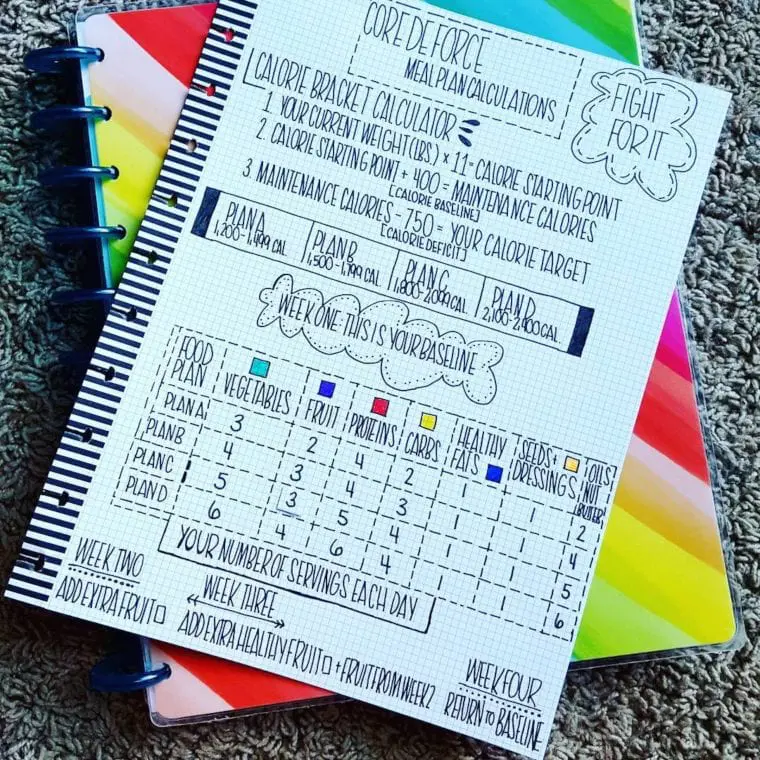 CORE DE FORCE
MEAL PLAN CALCULATIONS
FIGHT
FOR IT
CALORIE BRACKET CALCULATOR
1. YOUR CURRENT WEIGHT (LBS) × 11 = CALORIE STARTING POINT
2. CALORIE STARTING POINT + 400 = MAINTENANCE CALORIES
[CALORIE BASELINE]
3. MAINTENANCE CALORIES - 750 = YOUR CALORIE TARGET
[CALORIE DEFICIT]
PLAN A PLAN B PLAN C PLAN D
1,200-1,499 CAL 1,500-1,799 CAL 1,800-2,099 CAL 2,100-2,400 CAL
WEEK ONE: THIS IS YOUR BASELINE
FOOD PLAN VEGETABLES FRUIT PROTEINS CARBS HEALTHY FATS SEEDS + DRESSINGS OILS NUT BUTTER
PLAN A 3 2 4 2 1 1 2
PLAN B 4 3 4 3 1 1 4
PLAN C 5 3 5 4 1 1 5
PLAN D 6 4 6 4 1 1 6
YOUR NUMBER OF SERVINGS EACH DAY
WEEK TWO
ADD EXTRA FRUIT
WEEK THREE
ADD EXTRA HEALTHY FRUIT + FRUIT FROM WEEK 2
WEEK FOUR
RETURN TO BASELINE